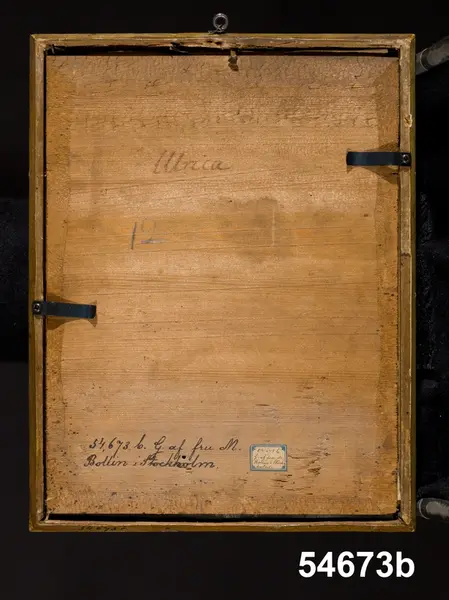 Ulrica
12
54,673 b. G. af fru M.
Bollin, Stockholm.
54673b